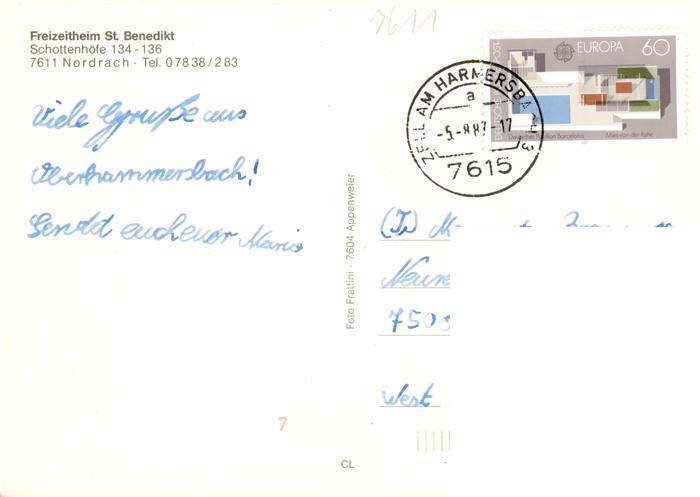 Freizeitheim St. Benedikt
Schottenhöfe 134 - 136
7611 Nordrach - Tel. 07838/283
Viele Grüße aus
Oberharmersbach!
Sendet euch euer Mario
Foto Frattini · 7604 Appenweier
7611
DEUTSCHE BUNDESPOST
EUROPA 60
Deutscher Pavillon Barcelona Mies van der Rohe
ZELL AM HARMERSBACH 3
a
-5.-8.87-17
7615
7
CL
West